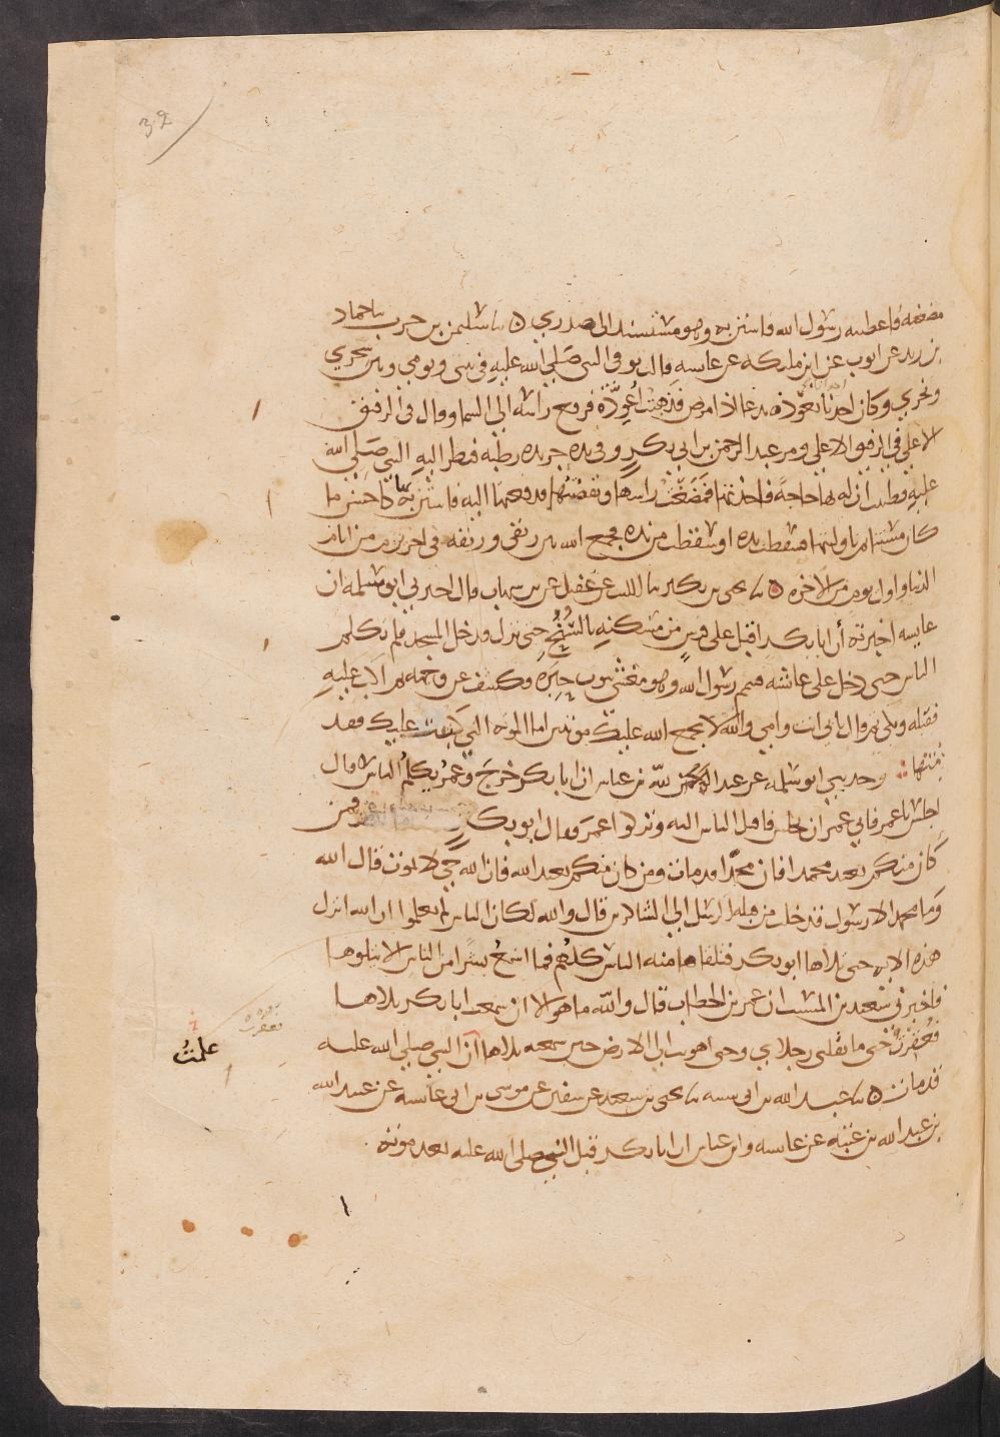 32
مضغمه فاعطيه رسول الله فاستن به وهو مستسند الى صدري ٥ نا سليمن بن حرب نا حماد
بن زيد عن ايوب عن ابن مليكه عن عايشه قالت توفي النبي صلي الله عليه في بيتي ويومي وبين سحري
ونحري وكان احدنا يعوذه بدعا اذا مرض فذهبت اعوذه فرفع راسه الي السما وقال في الرفيق
الاعلي في الرفيق الاعلي ومر عبد الرحمن بن ابي بكر وفي يده جريده رطبه فنظر اليه النبي صلي الله
عليه فظننت ان له بها حاجة فاخذتها فمضغت راسها ونفضتها فدفعتها اليه فاستن بها كاحسن ما
كان مستنا ثم ناولنيها فسقطت يده او سقطت من يده فجمع الله بين ريقي وريقه في اخر يوم من ايام
الدنيا واول يوم من الاخره ٥ نا يحيى بن بكير نا الليث عن عقيل عن بن شهاب قال اخبرني ابو سلمه ان
عايشه اخبرته أن ابا بكر اقبل على فرس من مسكنه بالسنح حتى نزل فدخل المسجد فلم يكلم
الناس حتى دخل على عائشه فيمم رسول الله وهو مغشى بثوب حبره فكشف عن وجهه ثم اكب عليه
فقبله وبكى ثم قال بابي انت وامي والله لا يجمع الله عليك موتتين اما الموته التي كتبت عليك فقد
متها وحدثني ابو سلمه عن عبد الله بن عباس ان ابا بكر خرج وعمر يكلم الناس قال
اجلس يا عمر فابى عمر ان يجلس فاقبل الناس اليه وتركوا عمر فقال ابو بكر فمن
كان منكم يعبد محمدا فان محمدا قد مات ومن كان منكم يعبد الله فان الله حي لا يموت قال الله
وما محمد الا رسول قد خلت من قبله الرسل الي الشاكرين قال والله لكان الناس لم يعلموا ان الله انزل
هذه الايه حتى تلاها ابو بكر فتلقاها منه الناس كلهم فما اسمع بشرا من الناس الا يتلوها
فاخبرني سعيد بن المسيب ان عمر بن الخطاب قال والله ما هو الا ان سمعت ابا بكر تلاها
فعقرت حتى ما تقلني رجلاي وحتى اهويت الى الارض حين سمعته تلاها أن النبي صلي الله عليه
علمتُ
قد مات ٥ نا عبد الله بن ابي شيبه نا يحيى بن سعيد عن سفين عن موسى بن ابي عائشه عن عبيد الله
بن عبد الله بن عتبه عن عايشه وابن عباس ان ابا بكر قبل النبي صلى الله عليه بعد موته